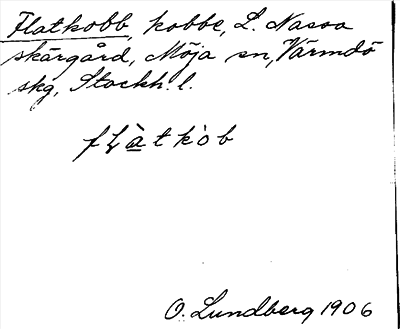 Flatkobb, kobbe, L. Nassa
skärgård, Möja sn, Värmdö
skg, Stockh. l.
fḷàtkòb
O. Lundberg 1906